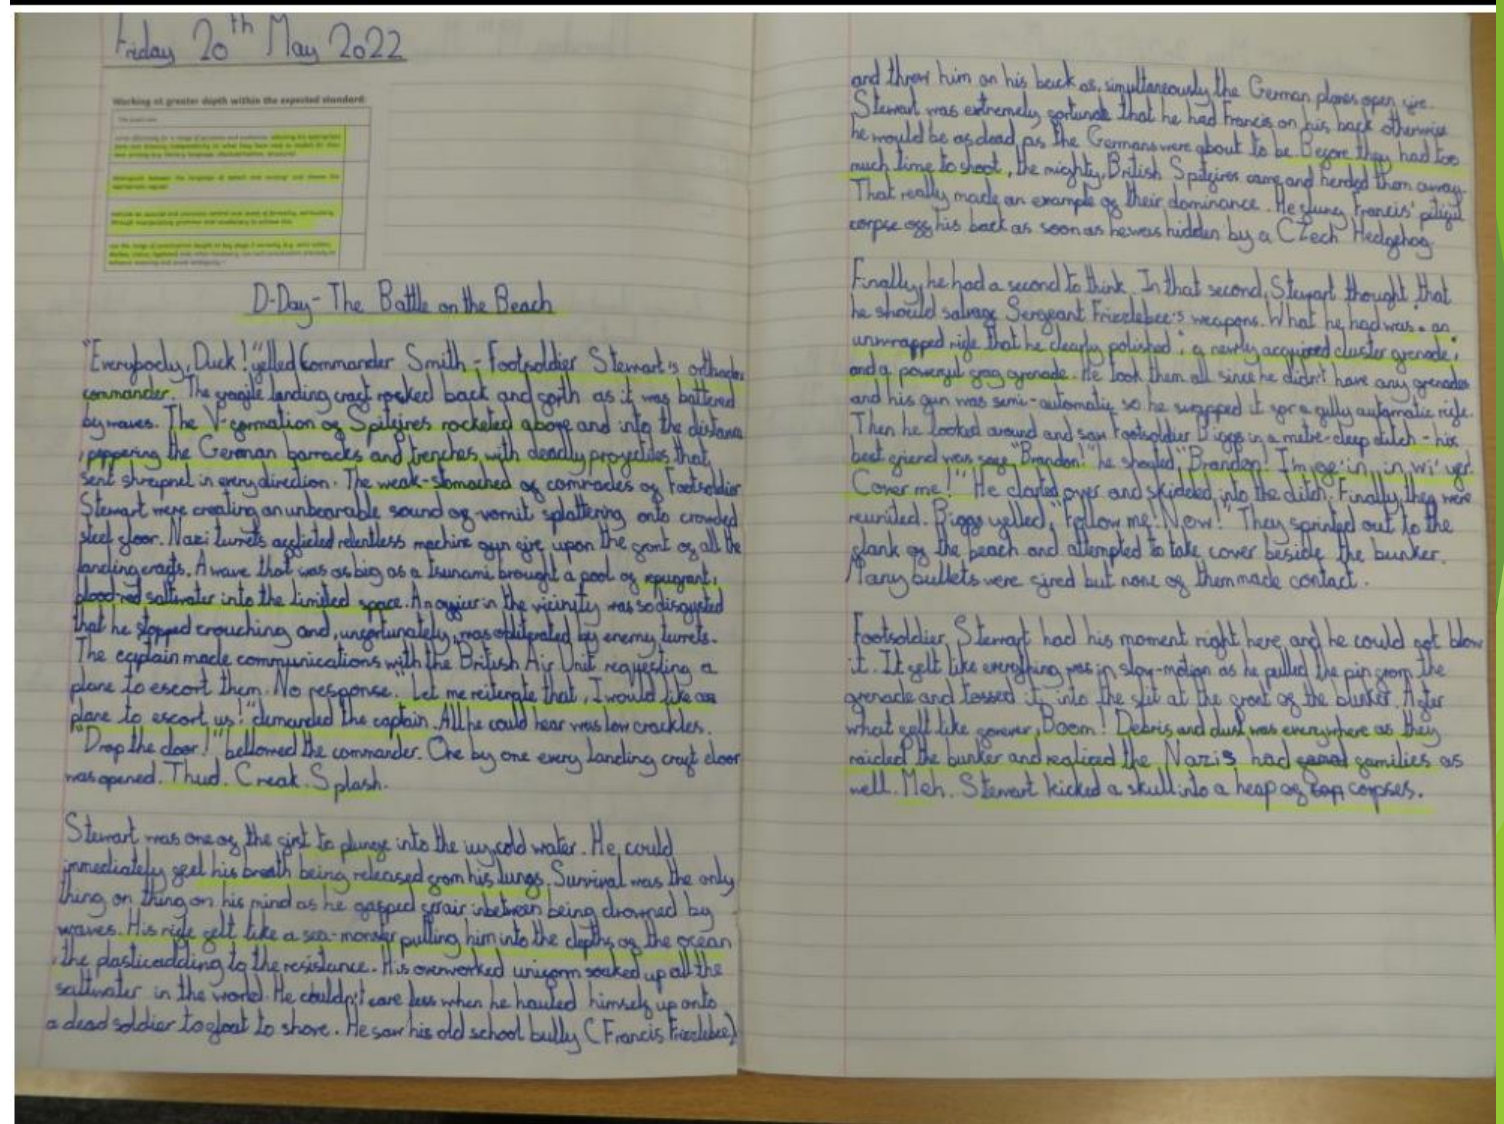 Friday 20th May 2022
Working at greater depth within the expected standard:
D-Day - The Battle on the Beach
"Everybody, Duck!" yelled Commander Smith - Footsoldier Stewart's orthodox
commander. The fragile landing craft rocked back and forth as it was battered
by waves. The V-formation of Spitfires rocketed above and into the distance
, peppering the German barracks and trenches, with deadly projectiles that
sent shrapnel in every direction. The weak-stomached of comrades of Footsoldier
Stewart were creating an unbearable sound of vomit splattering onto crowded
steel floor. Nazi turrets afflicted relentless machine gun fire upon the front of all the
landing crafts. A wave that was as big as a tsunami brought a pool of repugnant,
blood-red saltwater into the limited space. An officer in the vicinity was so disgusted
that he stopped crouching and, unfortunately, was obliterated by enemy turrets.
The captain made communications with the British Air Unit requesting a
plane to escort them. No response. "Let me reiterate that, I would like
plane to escort us!" demanded the captain. All he could hear was low crackles.
"Drop the door!" bellowed the commander. One by one every landing craft door
was opened. Thud. Creak. Splash.
Stewart was one of the first to plunge into the icy cold water. He could
immediately feel his breath being released from his lungs. Survival was the only
thing on thing on his mind as he gasped for air inbetween being drowned by
waves. His rifle felt like a sea-monster pulling him into the depths of the ocean
, the plastic adding to the resistance. His overworked uniform soaked up all the
saltwater in the world. He couldn't care less when he hauled himself up onto
a dead soldier to float to shore. He saw his old school bully (Francis Frizzlebee)
and threw him on his back as, simultaneously the German planes open fire.
Stewart was extremely fortunate that he had Francis on his back otherwise
he would be as dead, as the Germans were about to be. Before they had too
much time to shoot, the mighty, British Spitfires came and herded them away.
That really made an example of their dominance. He flung Francis' pitiful
corpse off his back as soon as he was hidden by a Czech Hedgehog.
Finally, he had a second to think. In that second, Stewart thought that
he should salvage Sergeant Frizzlebee's weapons. What he had was: an
unwrapped rifle that he clearly polished; a newly acquired cluster grenade;
and a powerful frag grenade. He took them all since he didn't have any grenades
and his gun was semi-automatic so he swapped it for a fully automatic rifle.
Then he looked around and saw Footsoldier Biggs in a metre-deep ditch - his
best friend was safe. "Brandon!" he shouted, "Brandon! I'm in wi' ye!
Cover me!" He darted over and skidded into the ditch. Finally, they were
reunited. Biggs yelled, "Follow me! Now!" They sprinted out to the
flank of the beach and attempted to take cover beside the bunker.
Many bullets were fired but none of them made contact.
Footsoldier Stewart had his moment right here, and he could not blow
it. It felt like everything was in slow-motion as he pulled the pin from the
grenade and tossed it into the slit at the front of the bunker. After
what felt like forever, Boom! Debris and dust was everywhere as they
raided the bunker and realized the Nazis had families as
well. Meh. Stewart kicked a skull into a heap of corpses.